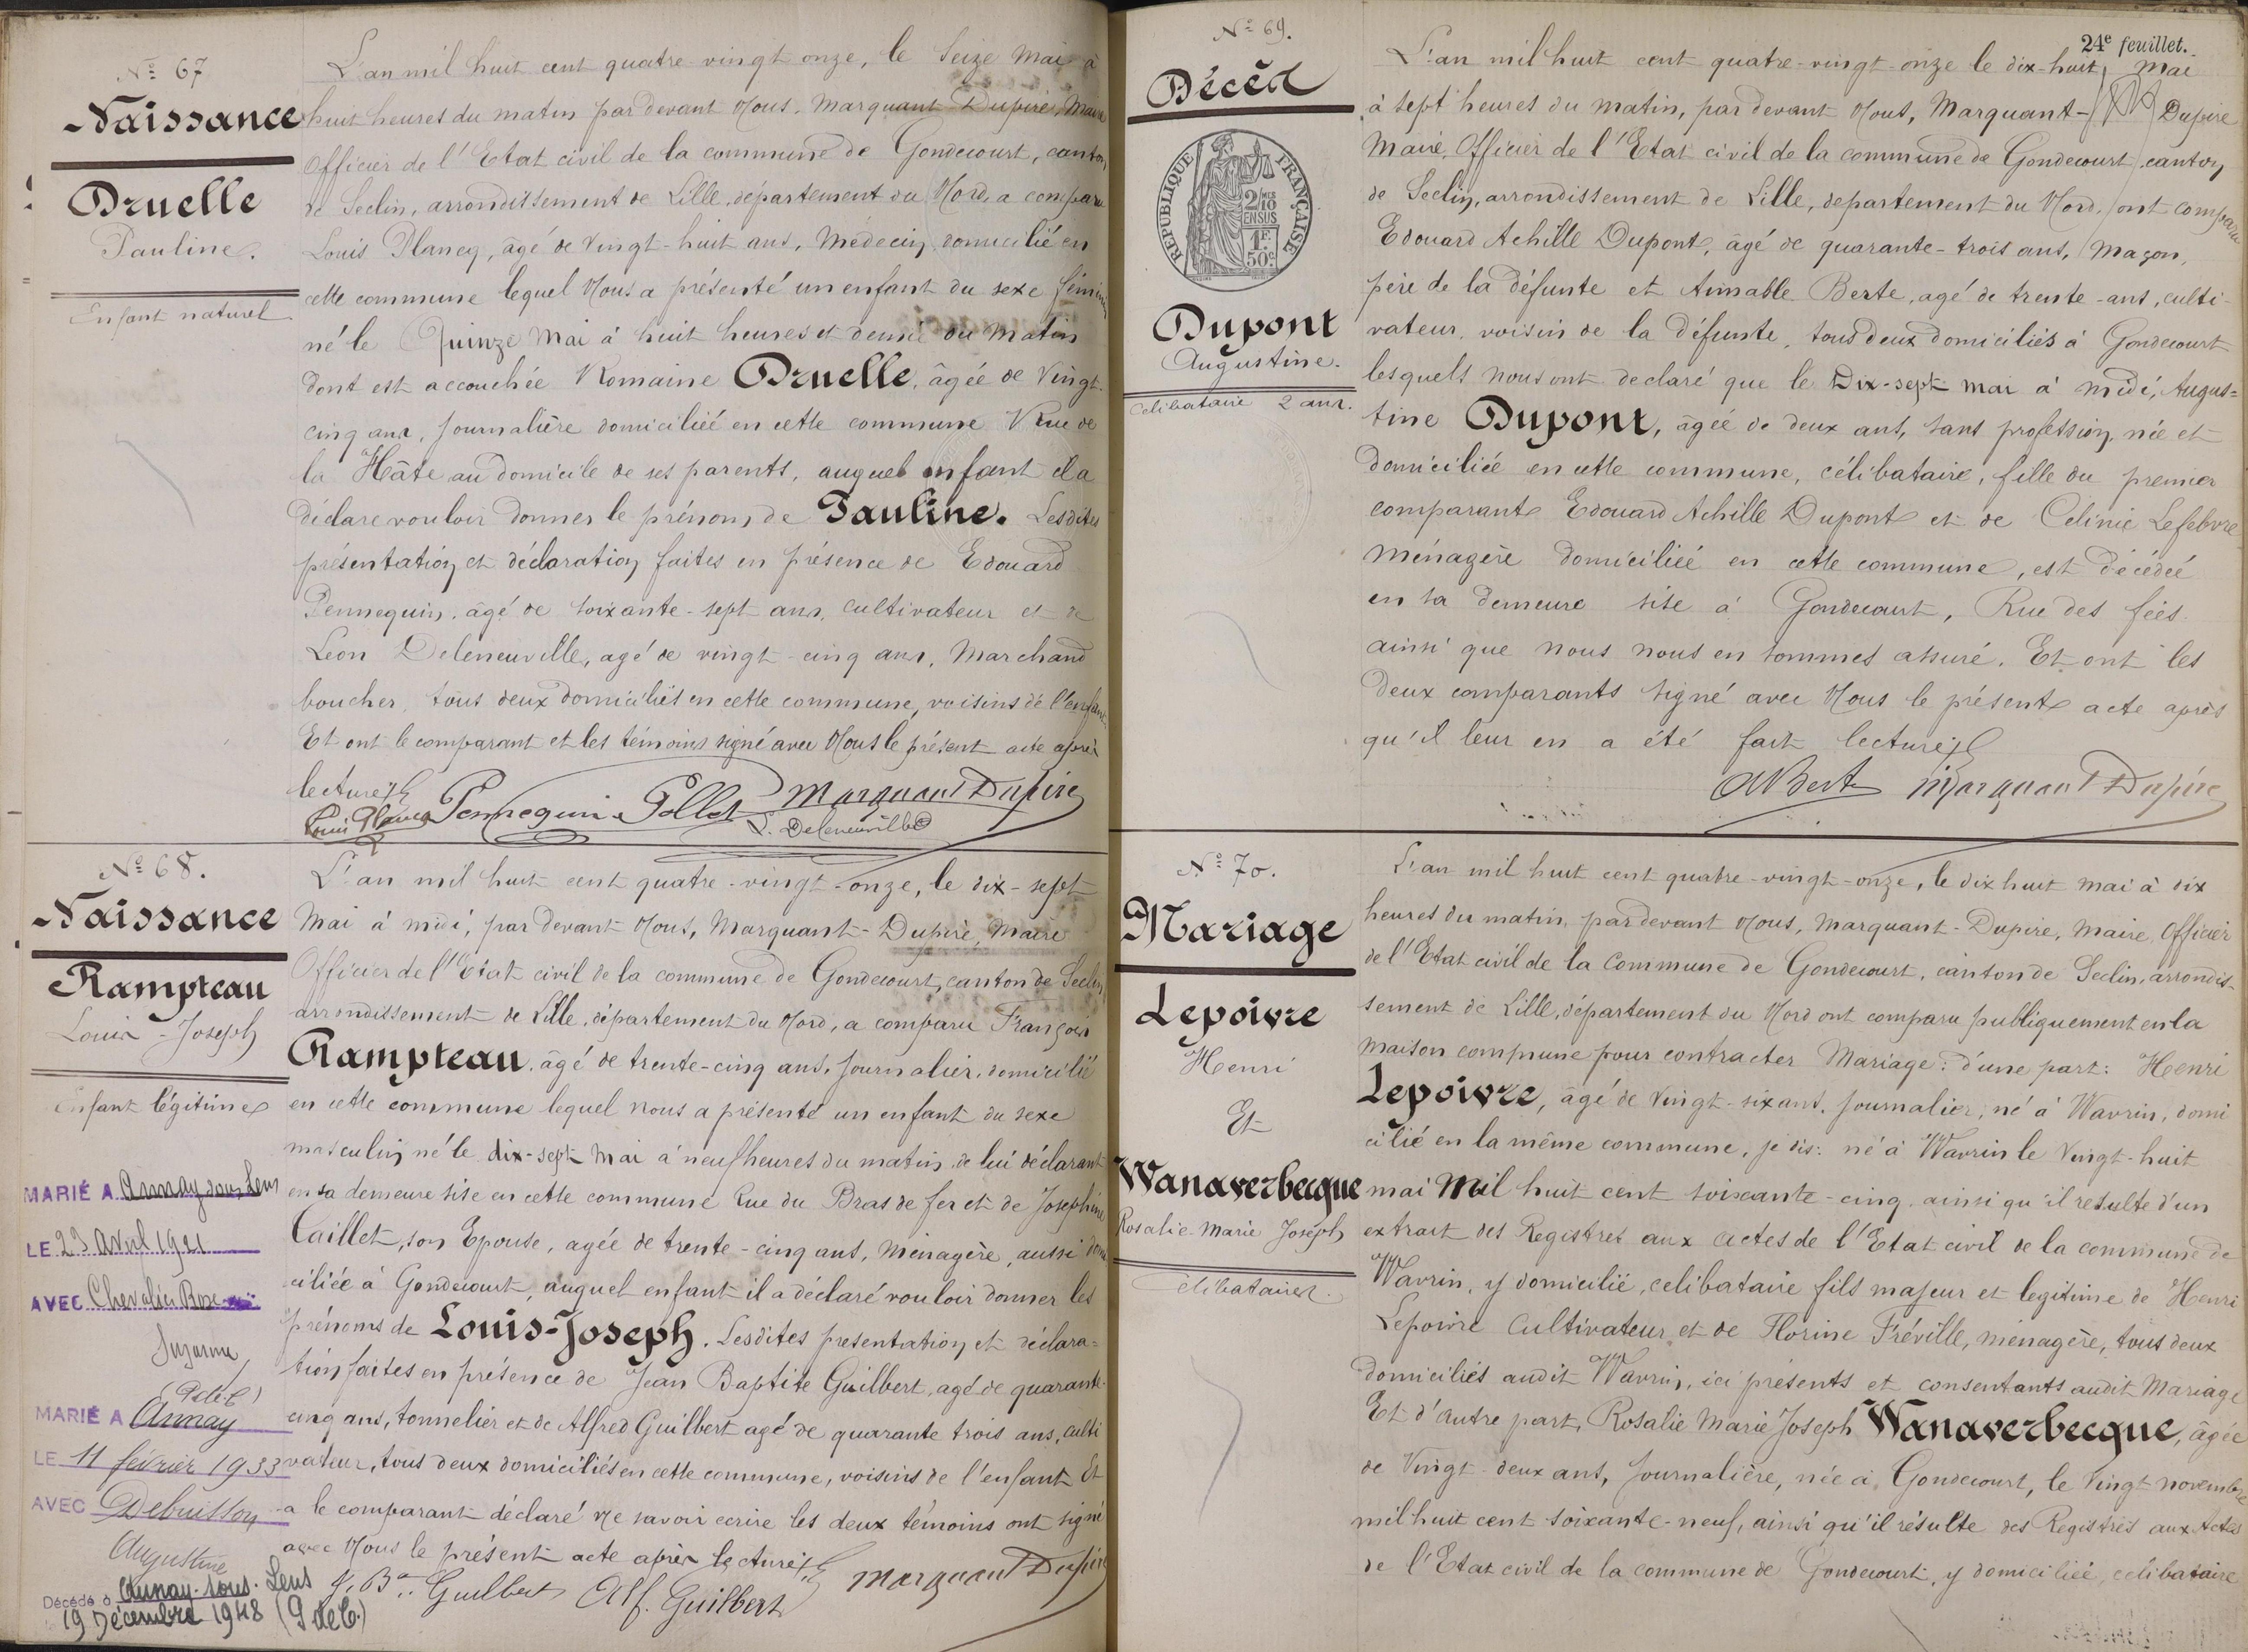 N° 67
Naissance
Druelle
Pauline.
Enfant naturel
L'an mil huit cent quatre-vingt onze, le Seize Mai à
huit heures du matin par devant Nous, Marquant Dupire, Maire
Officier de l'Etat civil de la commune de Gondecourt, canton
de Seclin, arrondissement de Lille, département du Nord, a comparu
Louis Plancq, âgé de vingt-huit ans, Médecin, domicilié en
cette commune lequel Nous a présenté un enfant du sexe féminin
né le Quinze Mai à huit heures et demie du matin
dont est accouchée Romaine Druelle, âgée de Vingt-
cinq ans, journalière domiciliée en cette commune Rue de
la Hâte au domicile de ses parents, auquel enfant il a
déclaré vouloir donner le prénom de Pauline. Lesdites
présentation et déclaration faites en présence de Edouard
Pennequin, âgé de soixante-sept ans, cultivateur et de
Léon Deleneuville, agé de vingt-cinq ans, Marchand
boucher, tous deux domiciliés en cette commune, voisins de l'enfant
Et ont le comparant et les témoins signé avec Nous le présent acte après
lecture
Louis Plancq Pennequin Pollet Marquant Dupire
L. Deleneuville
N° 68.
Naissance
Rampteau
Louis-Joseph
Enfant légitime
MARIÉ A Annay sous Lens
LE 23 Avril 1921
AVEC Chevalier Rose
Suzanne
(P de C)
MARIÉ A Annay
LE 11 février 1933
AVEC Debuisson
Augustine
Décédé à Annay-sous-Lens
19 Décembre 1948 (P de C.)
L'an mil huit cent quatre-vingt-onze, le dix-sept
Mai à midi, par devant Nous, Marquant-Dupire, Maire
Officier de l'Etat civil de la commune de Gondecourt, canton de Seclin
arrondissement de Lille, département du Nord, a comparu François
Rampteau, âgé de trente-cinq ans, journalier, domicilié
en cette commune lequel nous a présenté un enfant du sexe
masculin né le dix-sept Mai à neuf heures du matin, de lui déclarant
en sa demeure sise en cette commune Rue du Bras de fer et de Joséphine
Caillet, son Epouse, agée de trente-cinq ans, Ménagère, aussi domi
ciliée à Gondecourt, auquel enfant il a déclaré vouloir donner les
prénoms de Louis-Joseph. Lesdites présentation et déclara=
tion faites en présence de Jean Baptiste Guilbert, agé de quarante-
cinq ans, tonnelier et de Alfred Guilbert agé de quarante trois ans, culti
vateur, tous deux domiciliés en cette commune, voisins de l'enfant Et
a le comparant déclaré ne savoir ecrire les deux témoins ont signé
avec Nous le présent acte après lecture
J. Bte Guilbert Alf. Guilbert Marquant Dupire
24e feuillet.
N° 69.
Décèd
RÉPUBLIQUE FRANÇAISE
2/10 EN SUS
1F. 50c
Dupont
Augustine.
Célibataire 2 ans.
L'an mil huit cent quatre-vingt-onze le dix-huit Mai
à sept heures du matin, par devant Nous, Marquant-Dupire
Maire, Officier de l'Etat civil de la commune de Gondecourt, canton
de Seclin, arrondissement de Lille, département du Nord, ont comparu
Edouard Achille Dupont, âgé de quarante-trois ans, Maçon,
père de la défunte et Aimable Berte, agé de trente-ans, culti-
vateur, voisin de la défunte, tous deux domiciliés à Gondecourt
lesquels nous ont declaré que le Dix-sept mai à midi, Augus=
tine Dupont, âgée de deux ans, sans profession, née et
domiciliée en cette commune, célibataire, fille du premier
comparant Edouard Achille Dupont et de Celinie Lefebvre
Ménagère domiciliée en cette commune, est décédée
en sa demeure sise à Gondecourt, Rue des fées
ainsi que nous nous en sommes assuré. Et ont les
deux comparants signé avec Nous le présent acte après
qu'il leur en a été fait lecture
A Berte Marquant Dupire
N° 70.
Mariage
Lepoivre
Henri
Et
Wanaverbecque
Rosalie-Marie Joseph
célibataires.
L'an mil huit cent quatre-vingt-onze, le dix huit mai à dix
heures du matin, par devant Nous, Marquant-Dupire, Maire, Officier
de l'Etat civil de la Commune de Gondecourt, canton de Seclin, arrondis-
sement de Lille, département du Nord ont comparu publiquement en la
maison commune pour contracter Mariage: d'une part: Henri
Lepoivre, âgé de vingt-six ans, journalier, né à Wavrin, domi
cilié en la même commune, je dis: né à Wavrin le Vingt-huit
mai Mil huit cent soixante-cinq, ainsi qu'il résulte d'un
extrait des Registres aux Actes de l'Etat civil de la commune de
Wavrin, y domicilié, celibataire fils majeur et legitime de Henri
Lepoivre Cultivateur et de Florine Fréville, ménagère, tous deux
domiciliés audit Wavrin, ici présents et consentants audit Mariage
Et d'autre part, Rosalie Marie Joseph Wanaverbecque, âgée
de Vingt-deux ans, journalière, née à Gondecourt, le Vingt novembre
mil huit cent soixante-neuf, ainsi qu'il résulte des Registres aux Actes
de l'Etat civil de la commune de Gondecourt, y domiciliée, célibataire